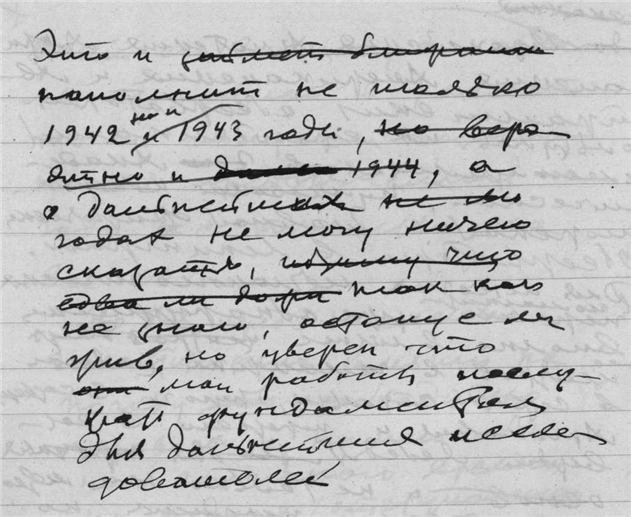 Это и
наполнит не только
1942 но и 1943 годы, но веро
ятно и 1944, а
о дальнейших не мо
годах не могу ничего
сказать, потому что
едва ли дожи так как
не знаю, останусь ли
жив, но уверен что
они мои работы послу-
жат фундаментом
для дальнейших иссле
дователей